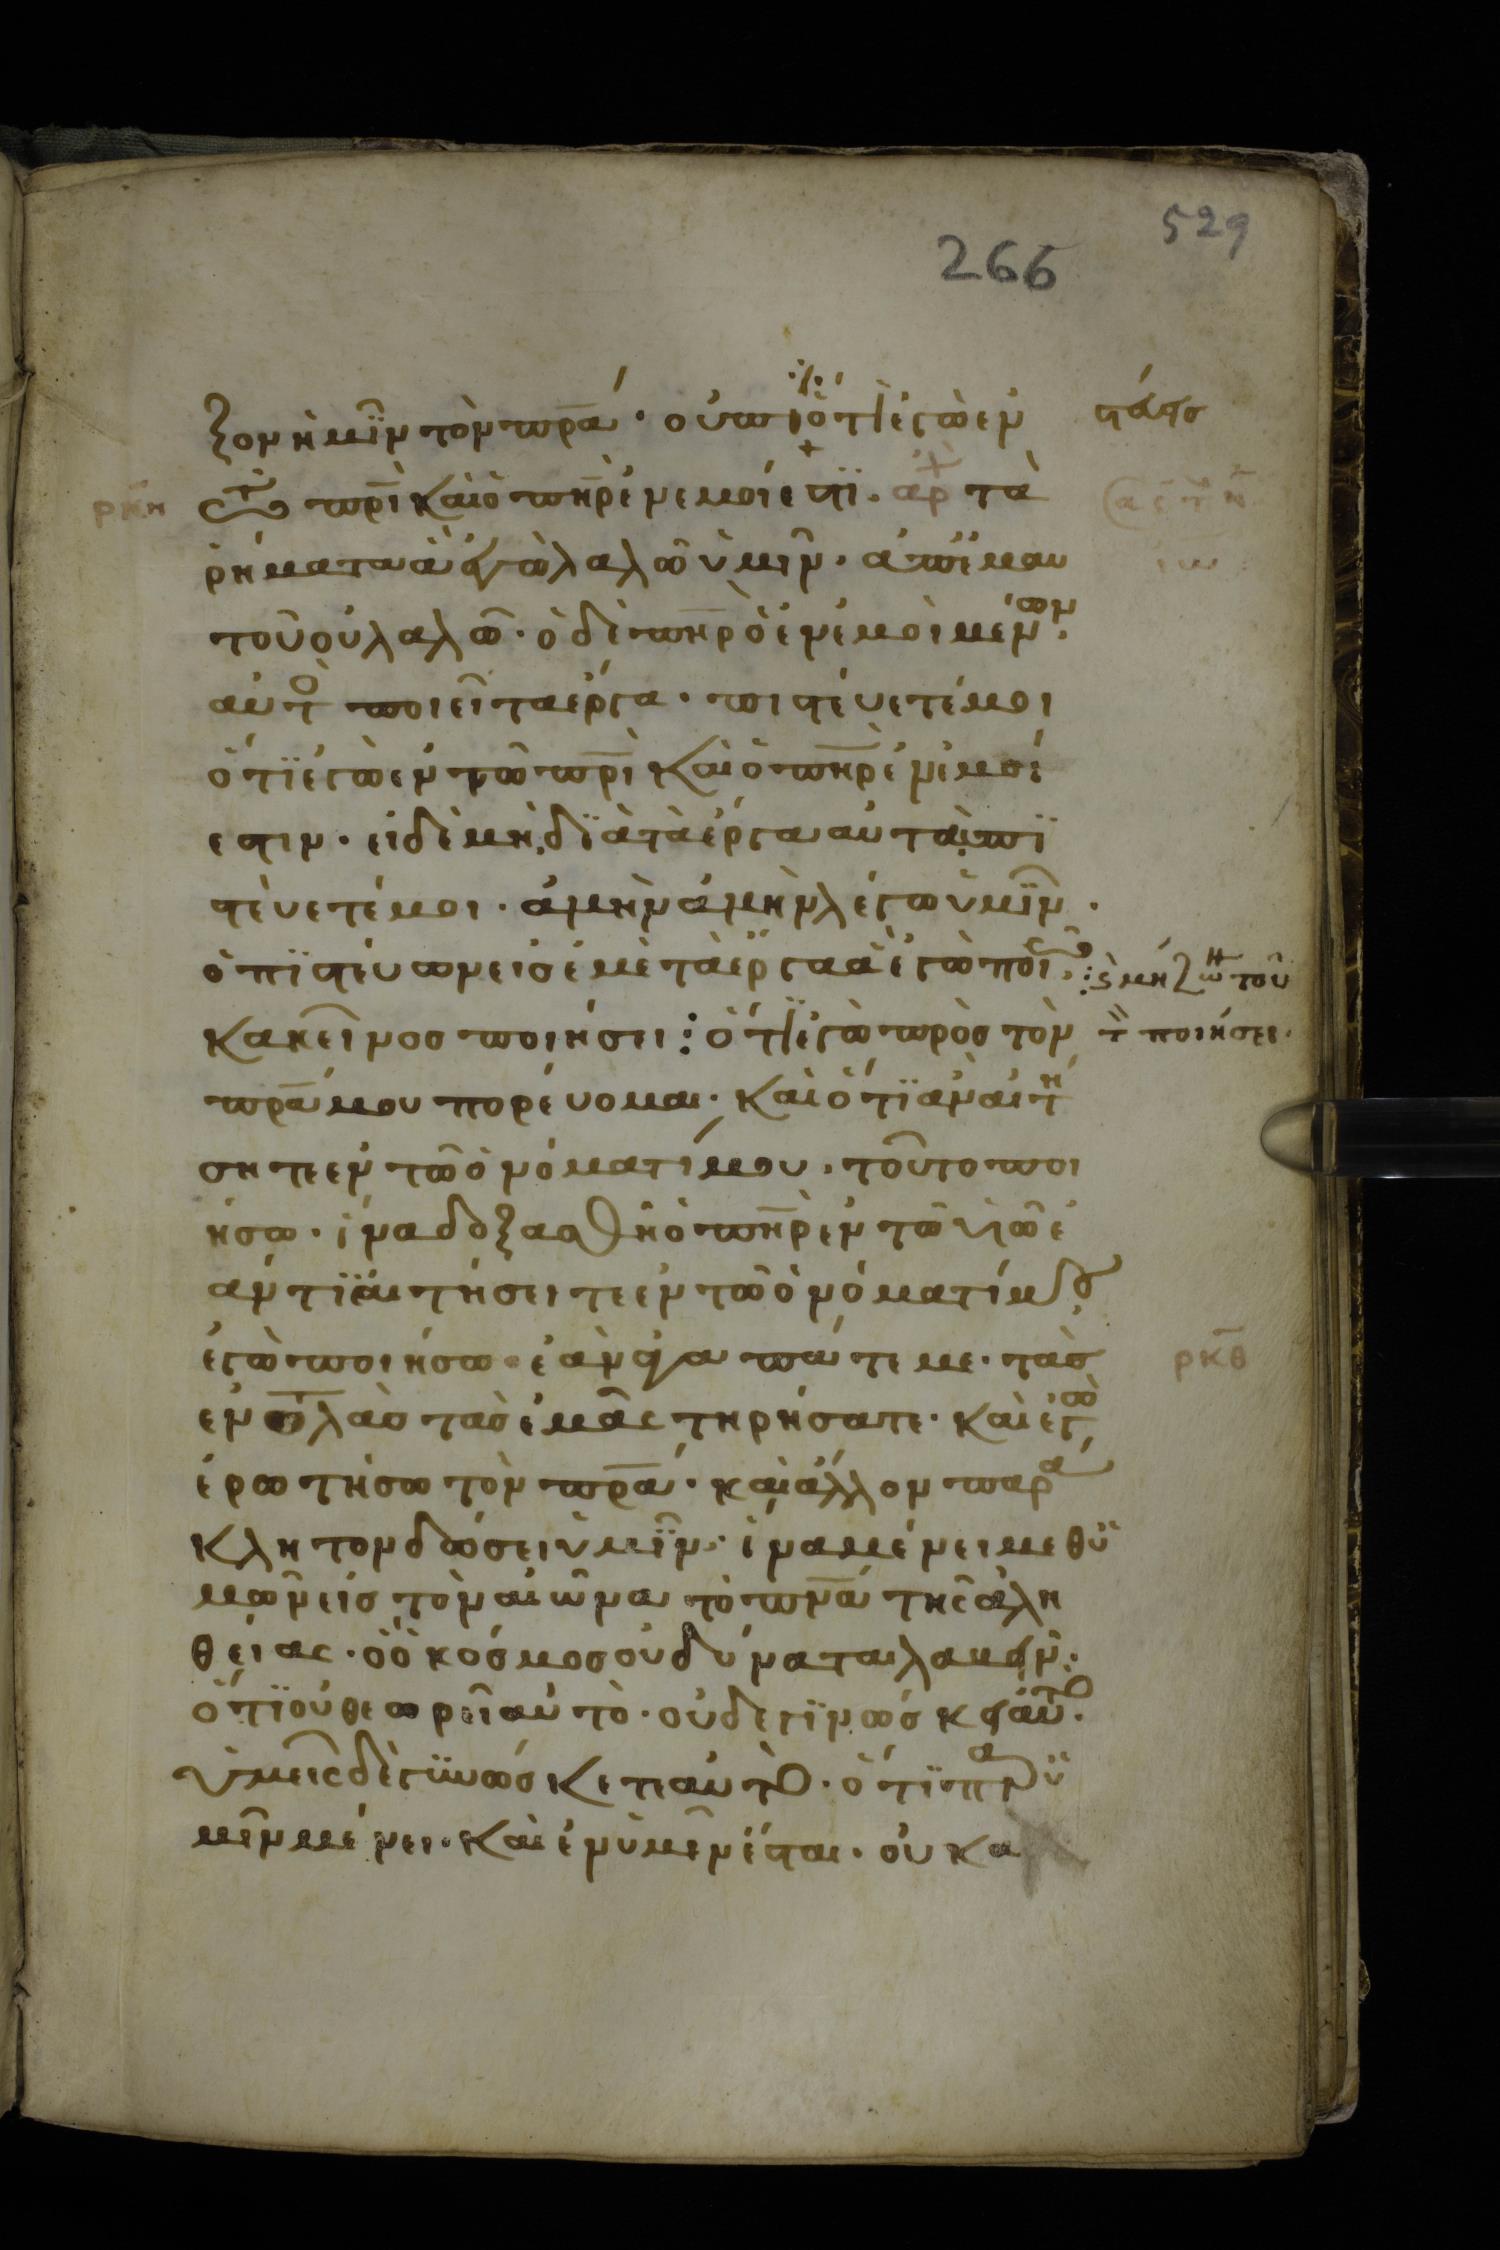 529
266
ξον ἡμῖν τὸν πρ̅ά· οὐ πι ὅτι ἐγὼ ἐν
τῶ πρ̅ὶ καὶ ὁ πη̅ρ ἐν ἐμοί ἐστϊ. ἀρ̅χ τὰ
ρκη
ῥήματα ἃ ἐγὼ λαλῶ ὑμῖν· ἀπ' ἐμαυ
τοῦ οὐ λαλῶ· ὁ δὲ πη̅ρ ὁ ἐν ἐμοὶ μένων.
αὐτὸ ποιεῖ τὰ ἔργα· πιστεύετέ μοι
ὅτϊ ἐγὼ ἐν τῶ πρ̅ὶ καὶ ὁ πη̅ρ ἐν ἐμοί
ἐστιν· εἰ δὲ μὴ, δϊὰ τὰ ἔργα αὐτὰ πϊ
στεύετέ μοι· ἀμὴν ἀμὴν λέγω ὑμῖν·
ὁ πϊστεύων εἰς ἐμὲ τὰ ἔργα ἃ ἐγὼ ποιῶ,
κακεῖνος ποιήσει: ὅτι ἐγὼ πρὸς τὸν
ϛ μήζω τού
τ ποιήσει.
πρ̅ά μου πορεύομαι· καὶ ὅτϊ ἂν αἰτή
σητε ἐν τῶ ὀνόματί μου, τοῦτο ποι
ήσω· ἵνα δοξασθῆ ὁ πη̅ρ ἐν τῶ υἱῶ ἐ
άν τϊ αἰτήσειτε ἐν τῶ ὀνόματί μου
ἐγὼ ποιήσω· ἐὰν ἀγαπᾶτέ με· τὰς
ρκθ
ἐντολὰς τὰς ἐμὰς τηρήσατε· καὶ ἐγὼ
ἐρωτήσω τὸν πρ̅ά· καὶ ἄλλον παρά
κλητον δώσει ὑμῖν· ἵνα μένει μεθ' ὑ
μῶν εἰς τὸν αἰῶνα τὸ πν̅ά τῆς ἀλη
θείας· ὃ ὁ κόσμος οὐ δύναται λαβεῖν·
ὅτϊ οὐ θεωρεῖ αὐτὸ· οὐδὲ γϊνώσκει αὐτό.
ὑμεῖς δὲ γϊνώσκετε αὐτὸ· ὅτϊ παρ' ὑ
μῖν μένει· καὶ ἐν ὑμῖν ἔσται· οὐκ α